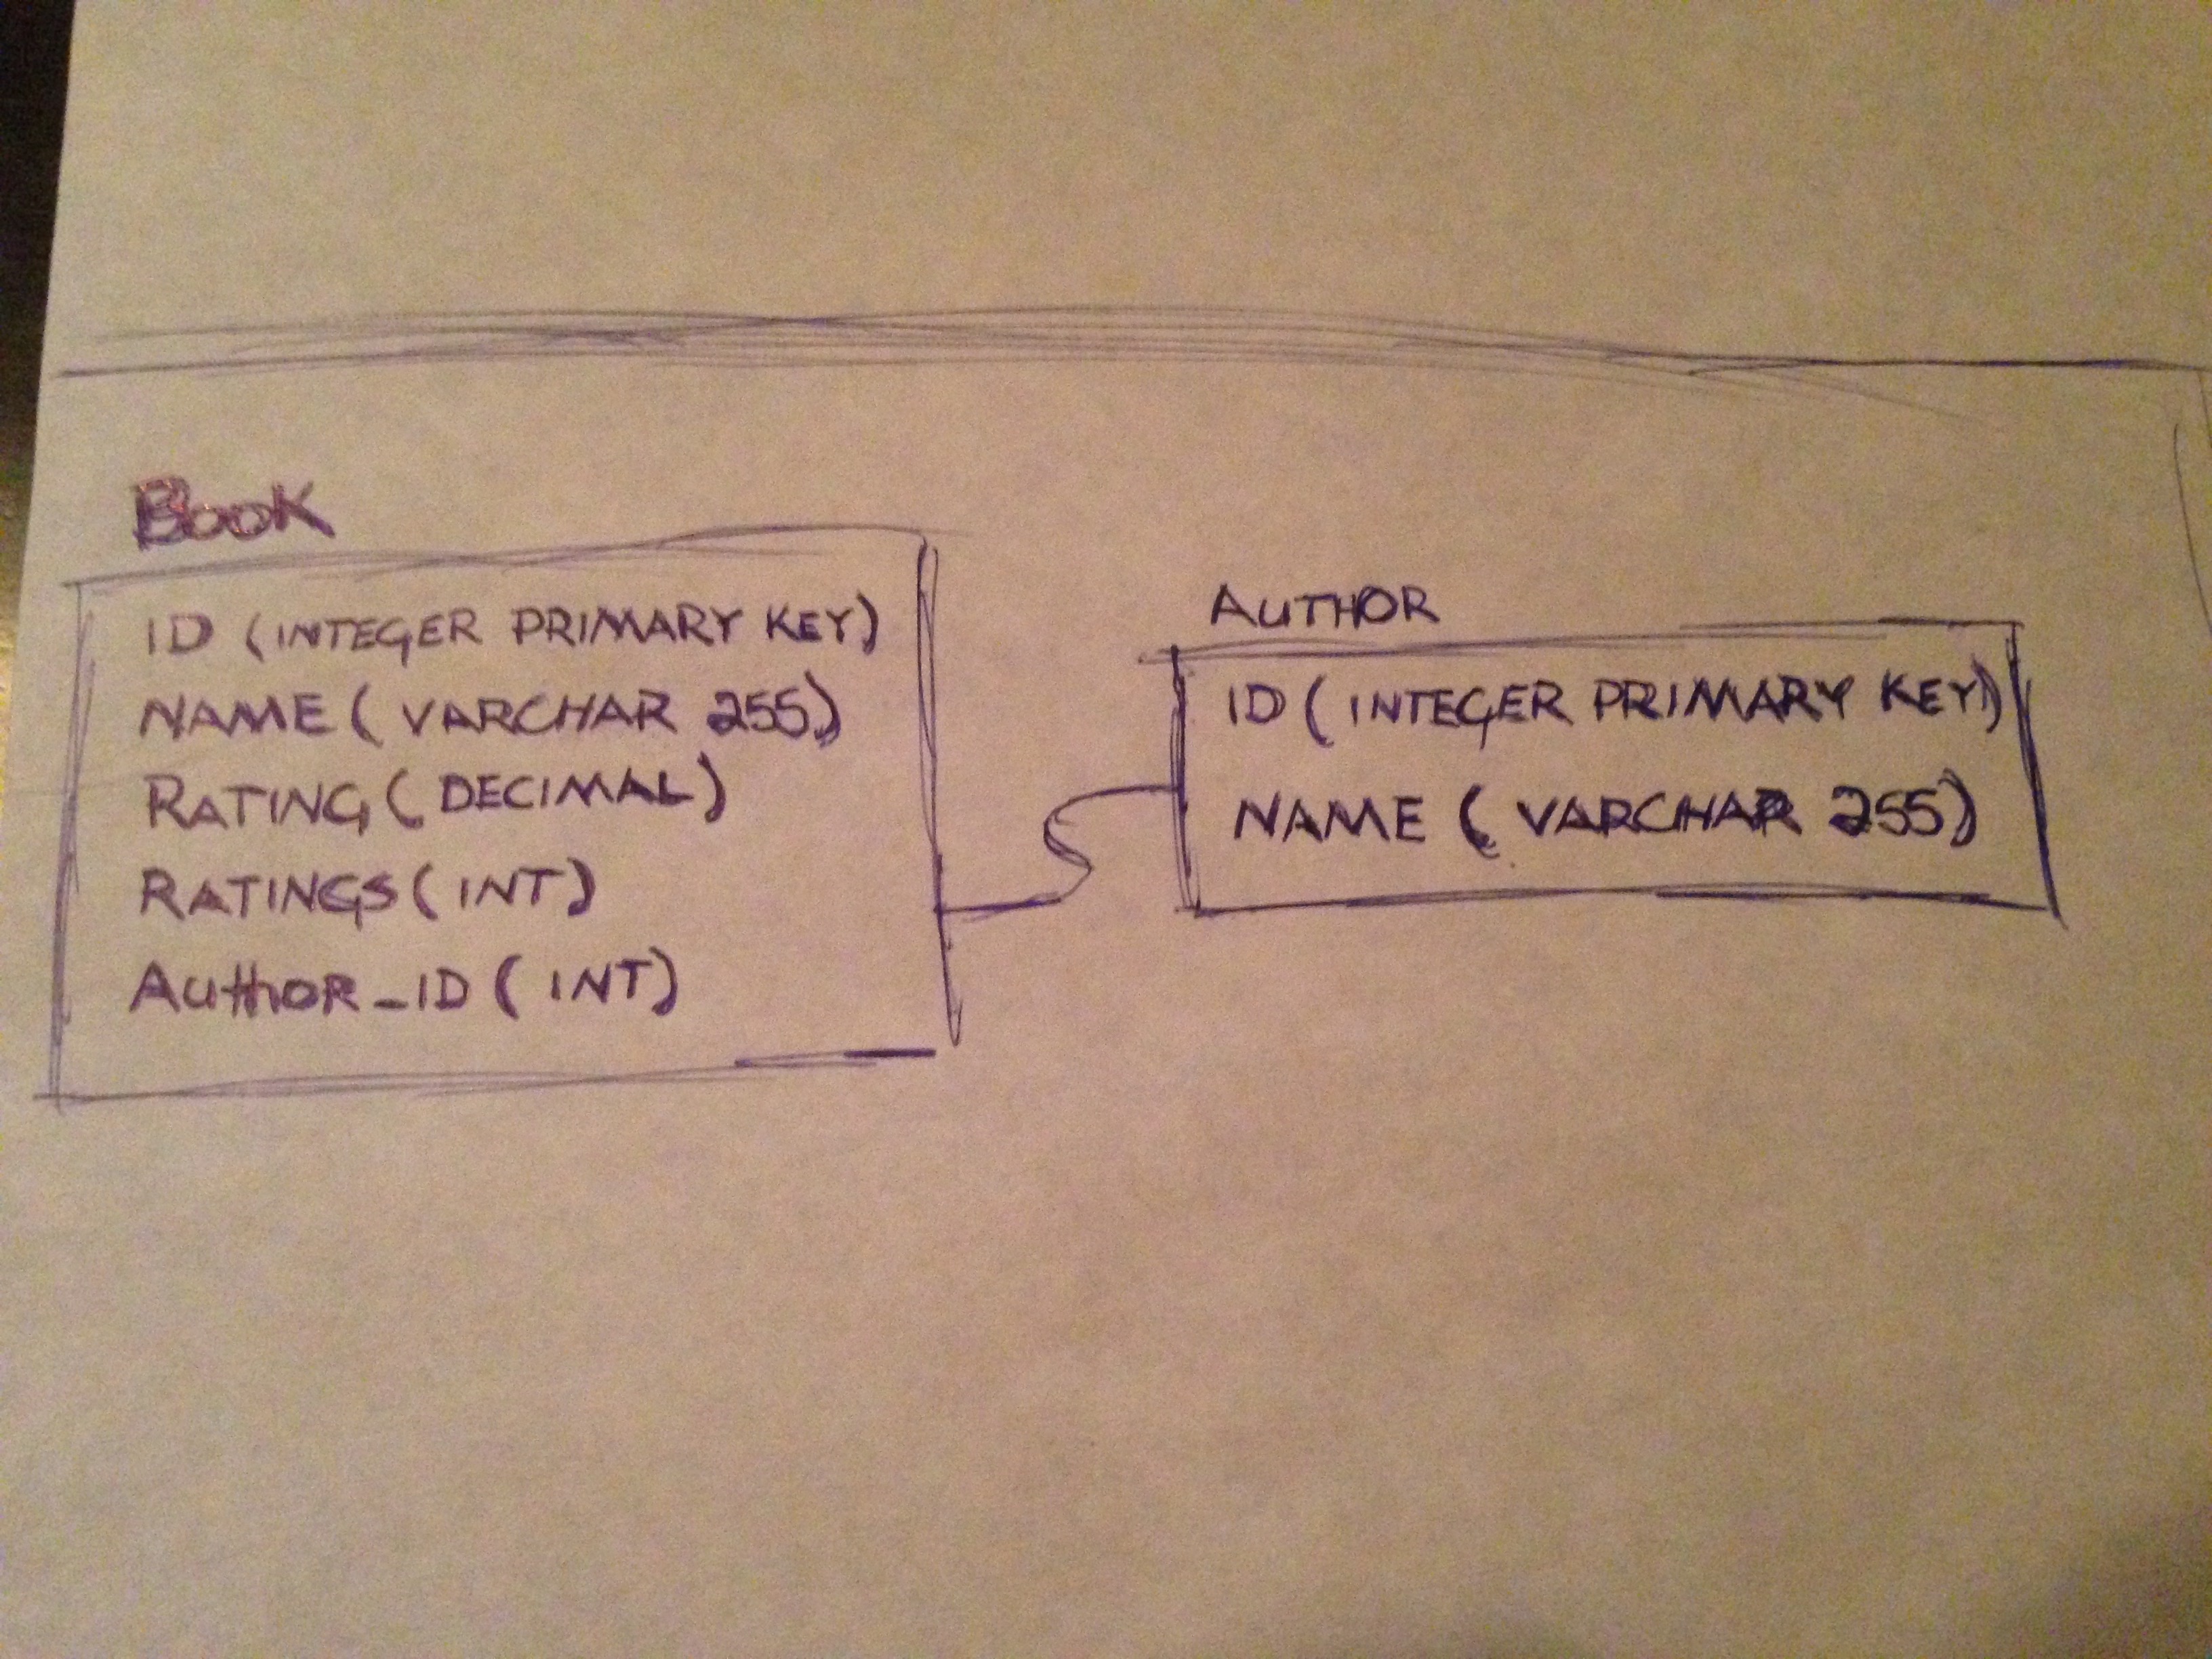 BOOK
ID (INTEGER PRIMARY KEY)
NAME (VARCHAR 255)
RATING (DECIMAL)
RATINGS (INT)
AUTHOR_ID (INT)
AUTHOR
ID (INTEGER PRIMARY KEY)
NAME (VARCHAR 255)